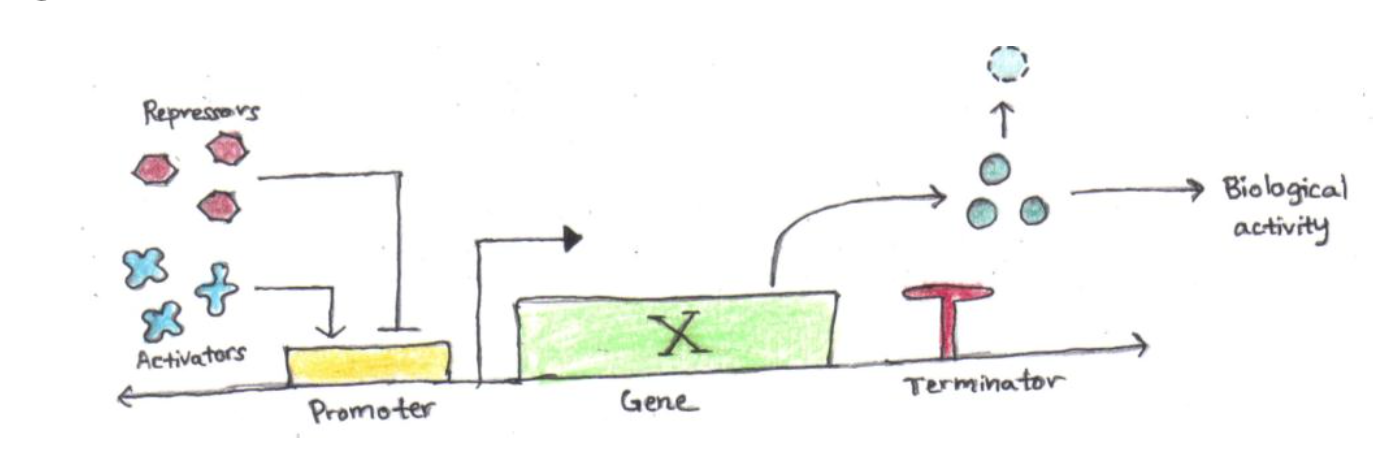 Repressors
Activators
Promoter
X
Gene
Terminator
Biological
activity